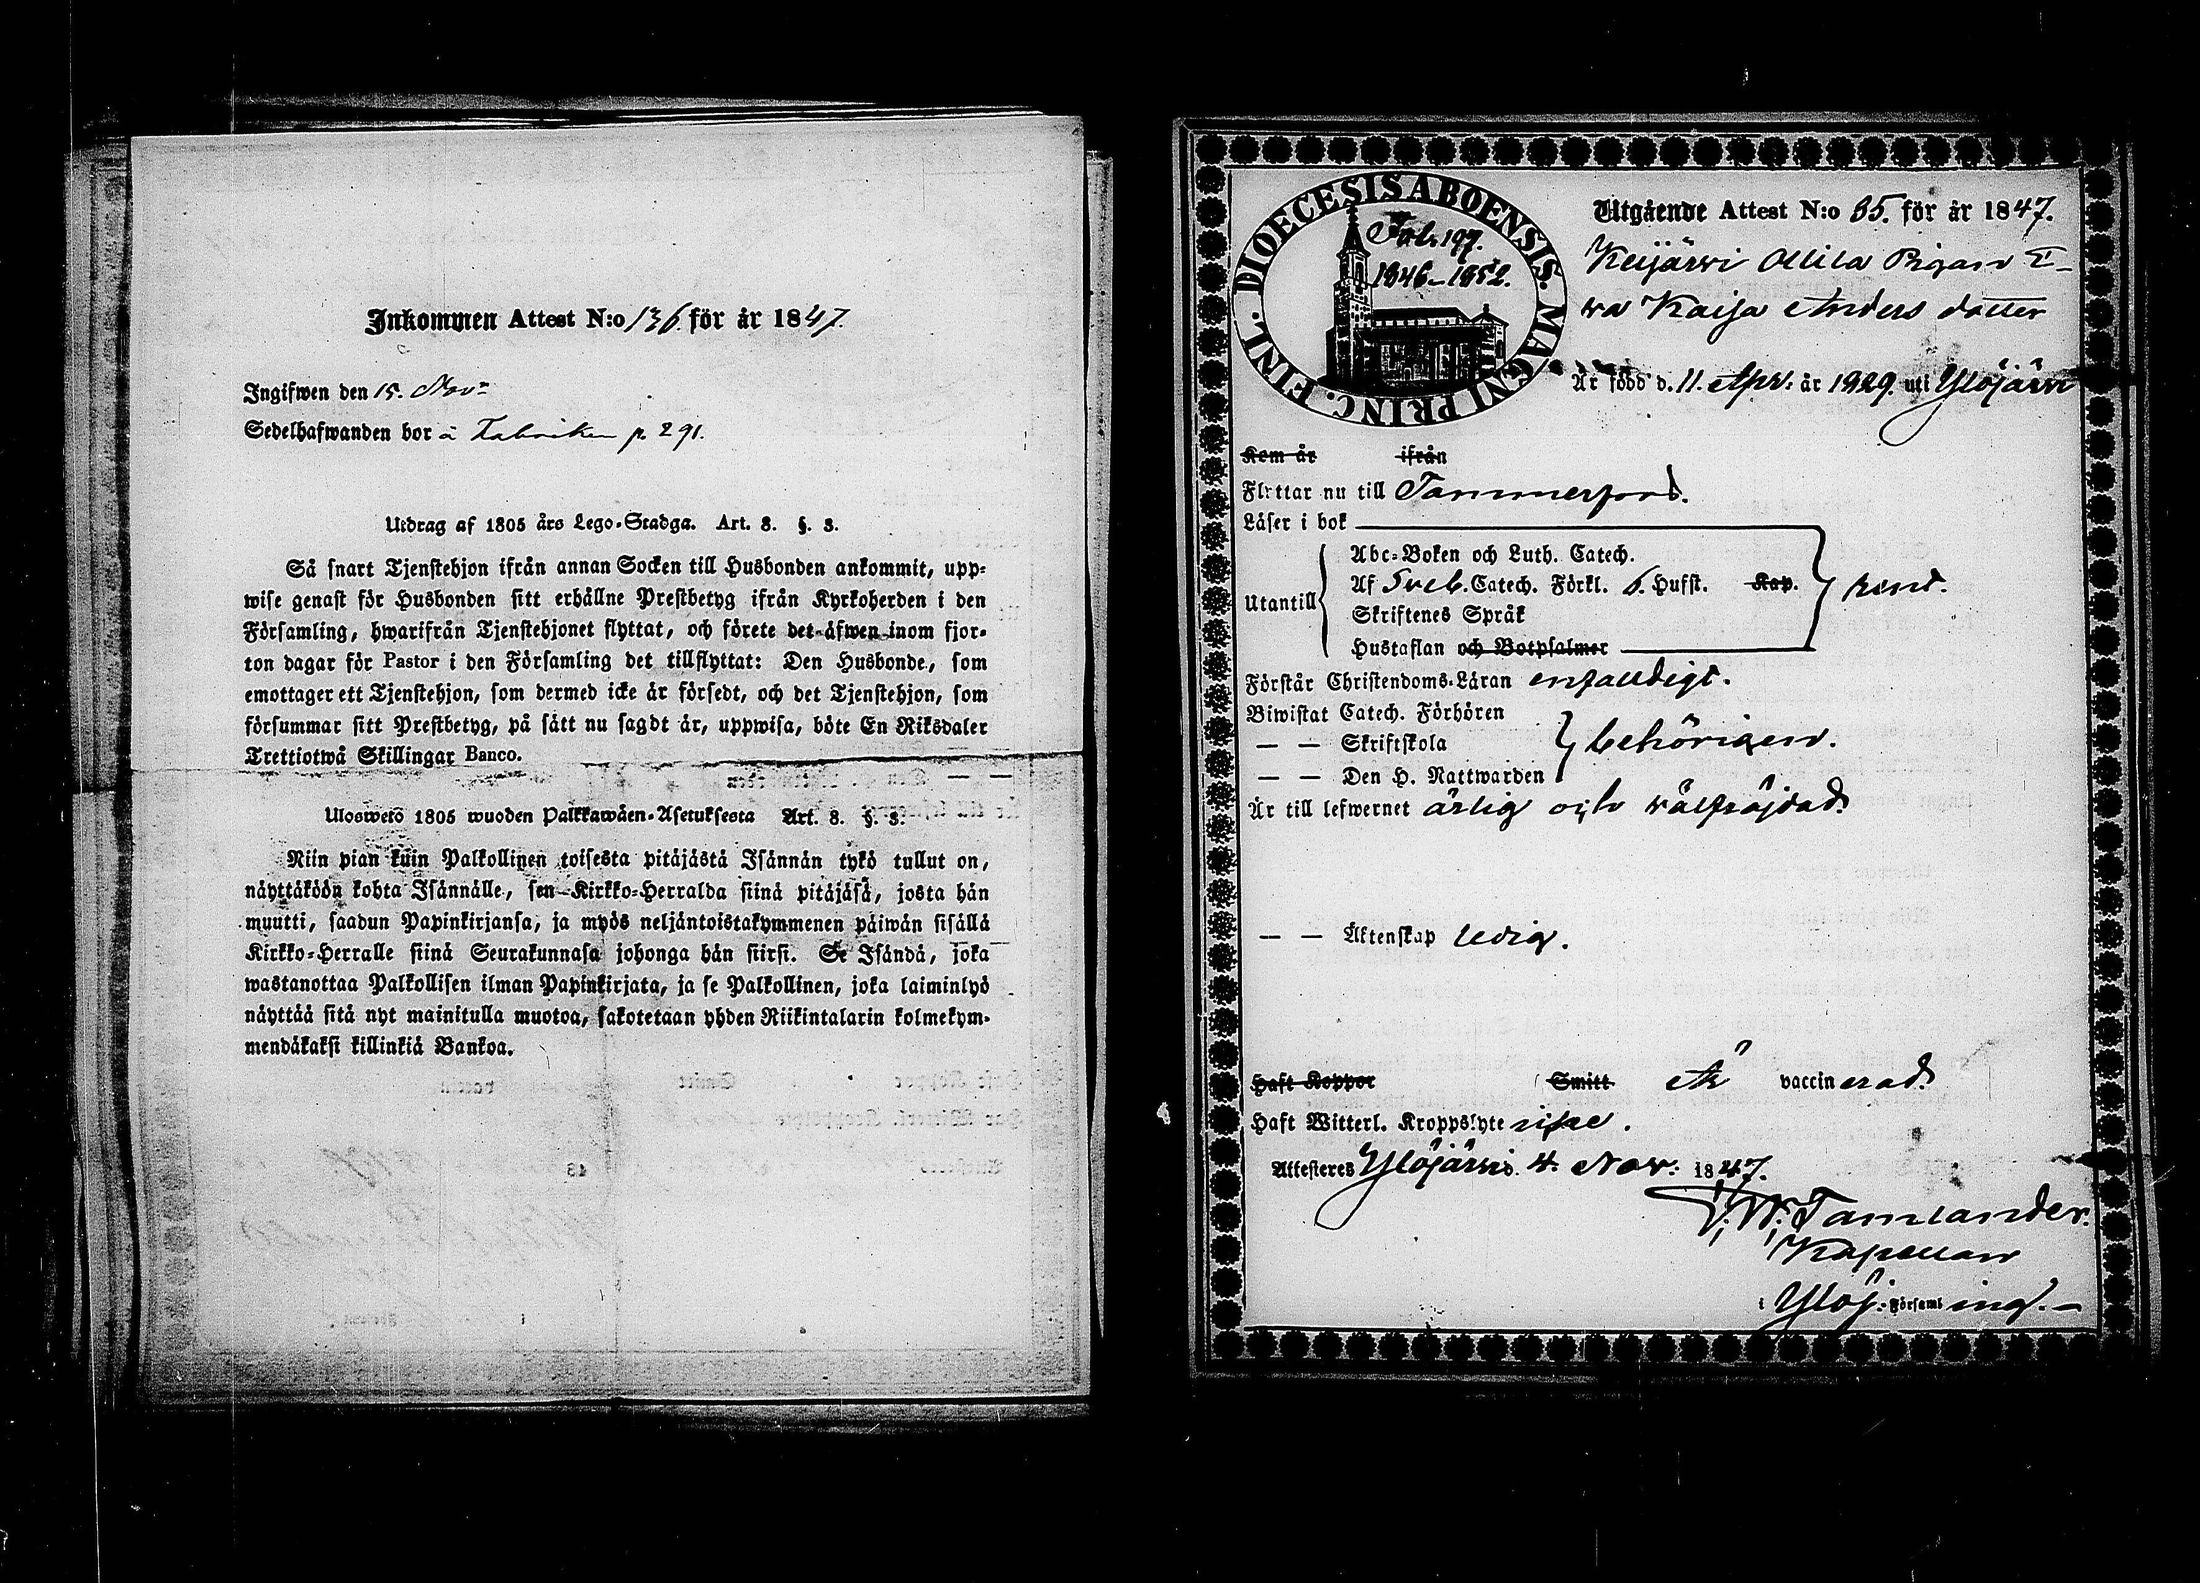 Inkommen Attest N:o 136 för år 1847.
Ingifwen den 15. Nov:
Sedelhafwanden bor å Fabriken p. 291.
Utdrag af 1805 års Lego-Stadga. Art. 8. §. 3.
Så snart Tjenstehjon ifrån annan Socken till Husbonden ankommit, upp-
wise genast för Husbonden sitt erhållne Prestbetyg ifrån Kyrkoherden i den
Församling, hwarifrån Tjenstehjonet flyttat, och förete det äfwen inom fjor-
ton dagar för Pastor i den Församling det tillflyttat: Den Husbonde, som
emottager ett Tjenstehjon, som dermed icke är försedt, och det Tjenstehjon, som
försummar sitt Prestbetyg, på sätt nu sagdt är, uppwisa, böte En Riksdaler
Trettiotwå Skillingar Banco.
Uloswetö 1805 wuoden Palkkawäen-Asetuksesta Art. 8. §. 3.
Niin pian kuin Palkollinen toisesta pitäjästä Isännän tykö tullut on,
näyttäköön kohta Isännälle, sen Kirkko-Herralda siinä pitäjäsä, josta hän
muutti, saadun Papinkirjansa, ja myös neljäntoistakymmenen päiwän sisällä
Kirkko-Herralle siinä Seurakunnasa johonga hän siirsi. Se Isändä, joka
wastanottaa Palkollisen ilman Papinkirjata, ja se Palkollinen, joka laiminlyö
näyttää sitä nyt mainitulla muotoa, sakotetaan yhden Riikintalarin kolmekym-
mendäkaksi killinkiä Bankoa.
DIOECESIS ABOENSIS. MAGNI PRINC. FINL.
Fol. 197.
1846-1852.
Utgående Attest N:o 35. för år 1847.
Keijärwi Ollila Pigan E-
wa Kaisa Anders dotter
Är född d. 11. Apr: år 1829. uti Ylöjärwi
Kom år ifrån
Flyttar nu till Tammerfors.
Läser i bok
Abc-Boken och Luth. Catech.
Utantill Af Sveb. Catech. Förkl. 6. Hufst. Kap. rent.
Skriftenes Språk
Hustaflan och Botpsalmer
Förstår Christendoms-Läran enfaldigt.
Biwistat Catech. Förhören
— — Skriftskola behörigen.
— — Den H. Nattwarden
Är till lefwernet ärlig och wälfräjdad.
— — Äktenskap ledig.
Haft Koppor Smitt Är vaccinerad.
Haft Witterl. Kroppslyte icke.
Attesteres Ylöjärwi d. 4. Nov: 1847.
Tamlander.
Kapellan
i Ylöj: Församling.